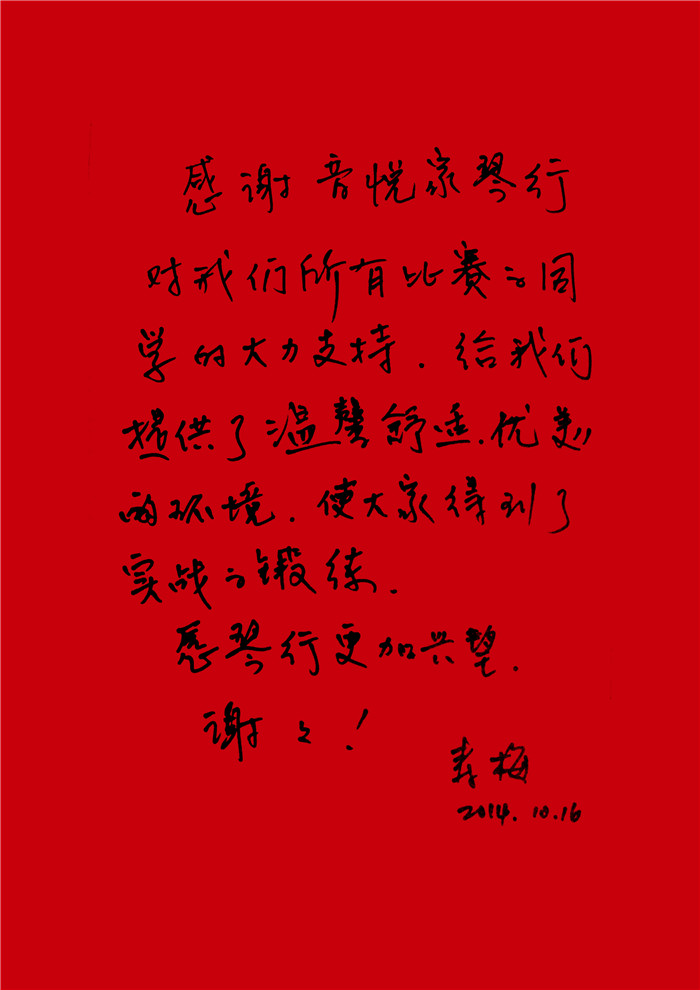 感谢音悦家琴行
对我们所有比赛的同
学的大力支持.给我们
提供了温馨舒适.优美
的环境.使大家得到了
实战与锻练.
愿琴行更加兴望.
谢々!
春梅
2014.10.16